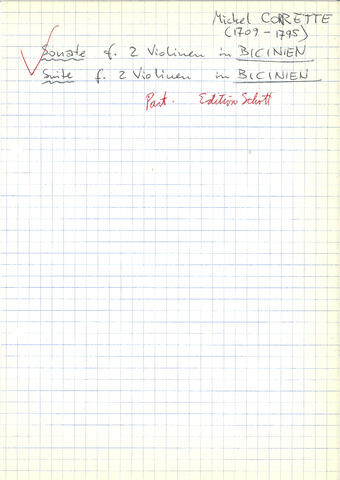 Michel CORETTE
(1709 - 1795)
Sonate f. 2 Violinen in BICINIEN
Suite f. 2 Violinen in BICINIEN
Part. Edition Schott